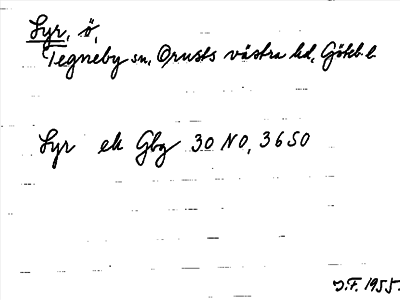 Lyr, ö,
Tegneby sn, Orusts västra hd, Göteb. l.
Lyr ek Gbg 30 NO, 36 SO
J.F. 1955.